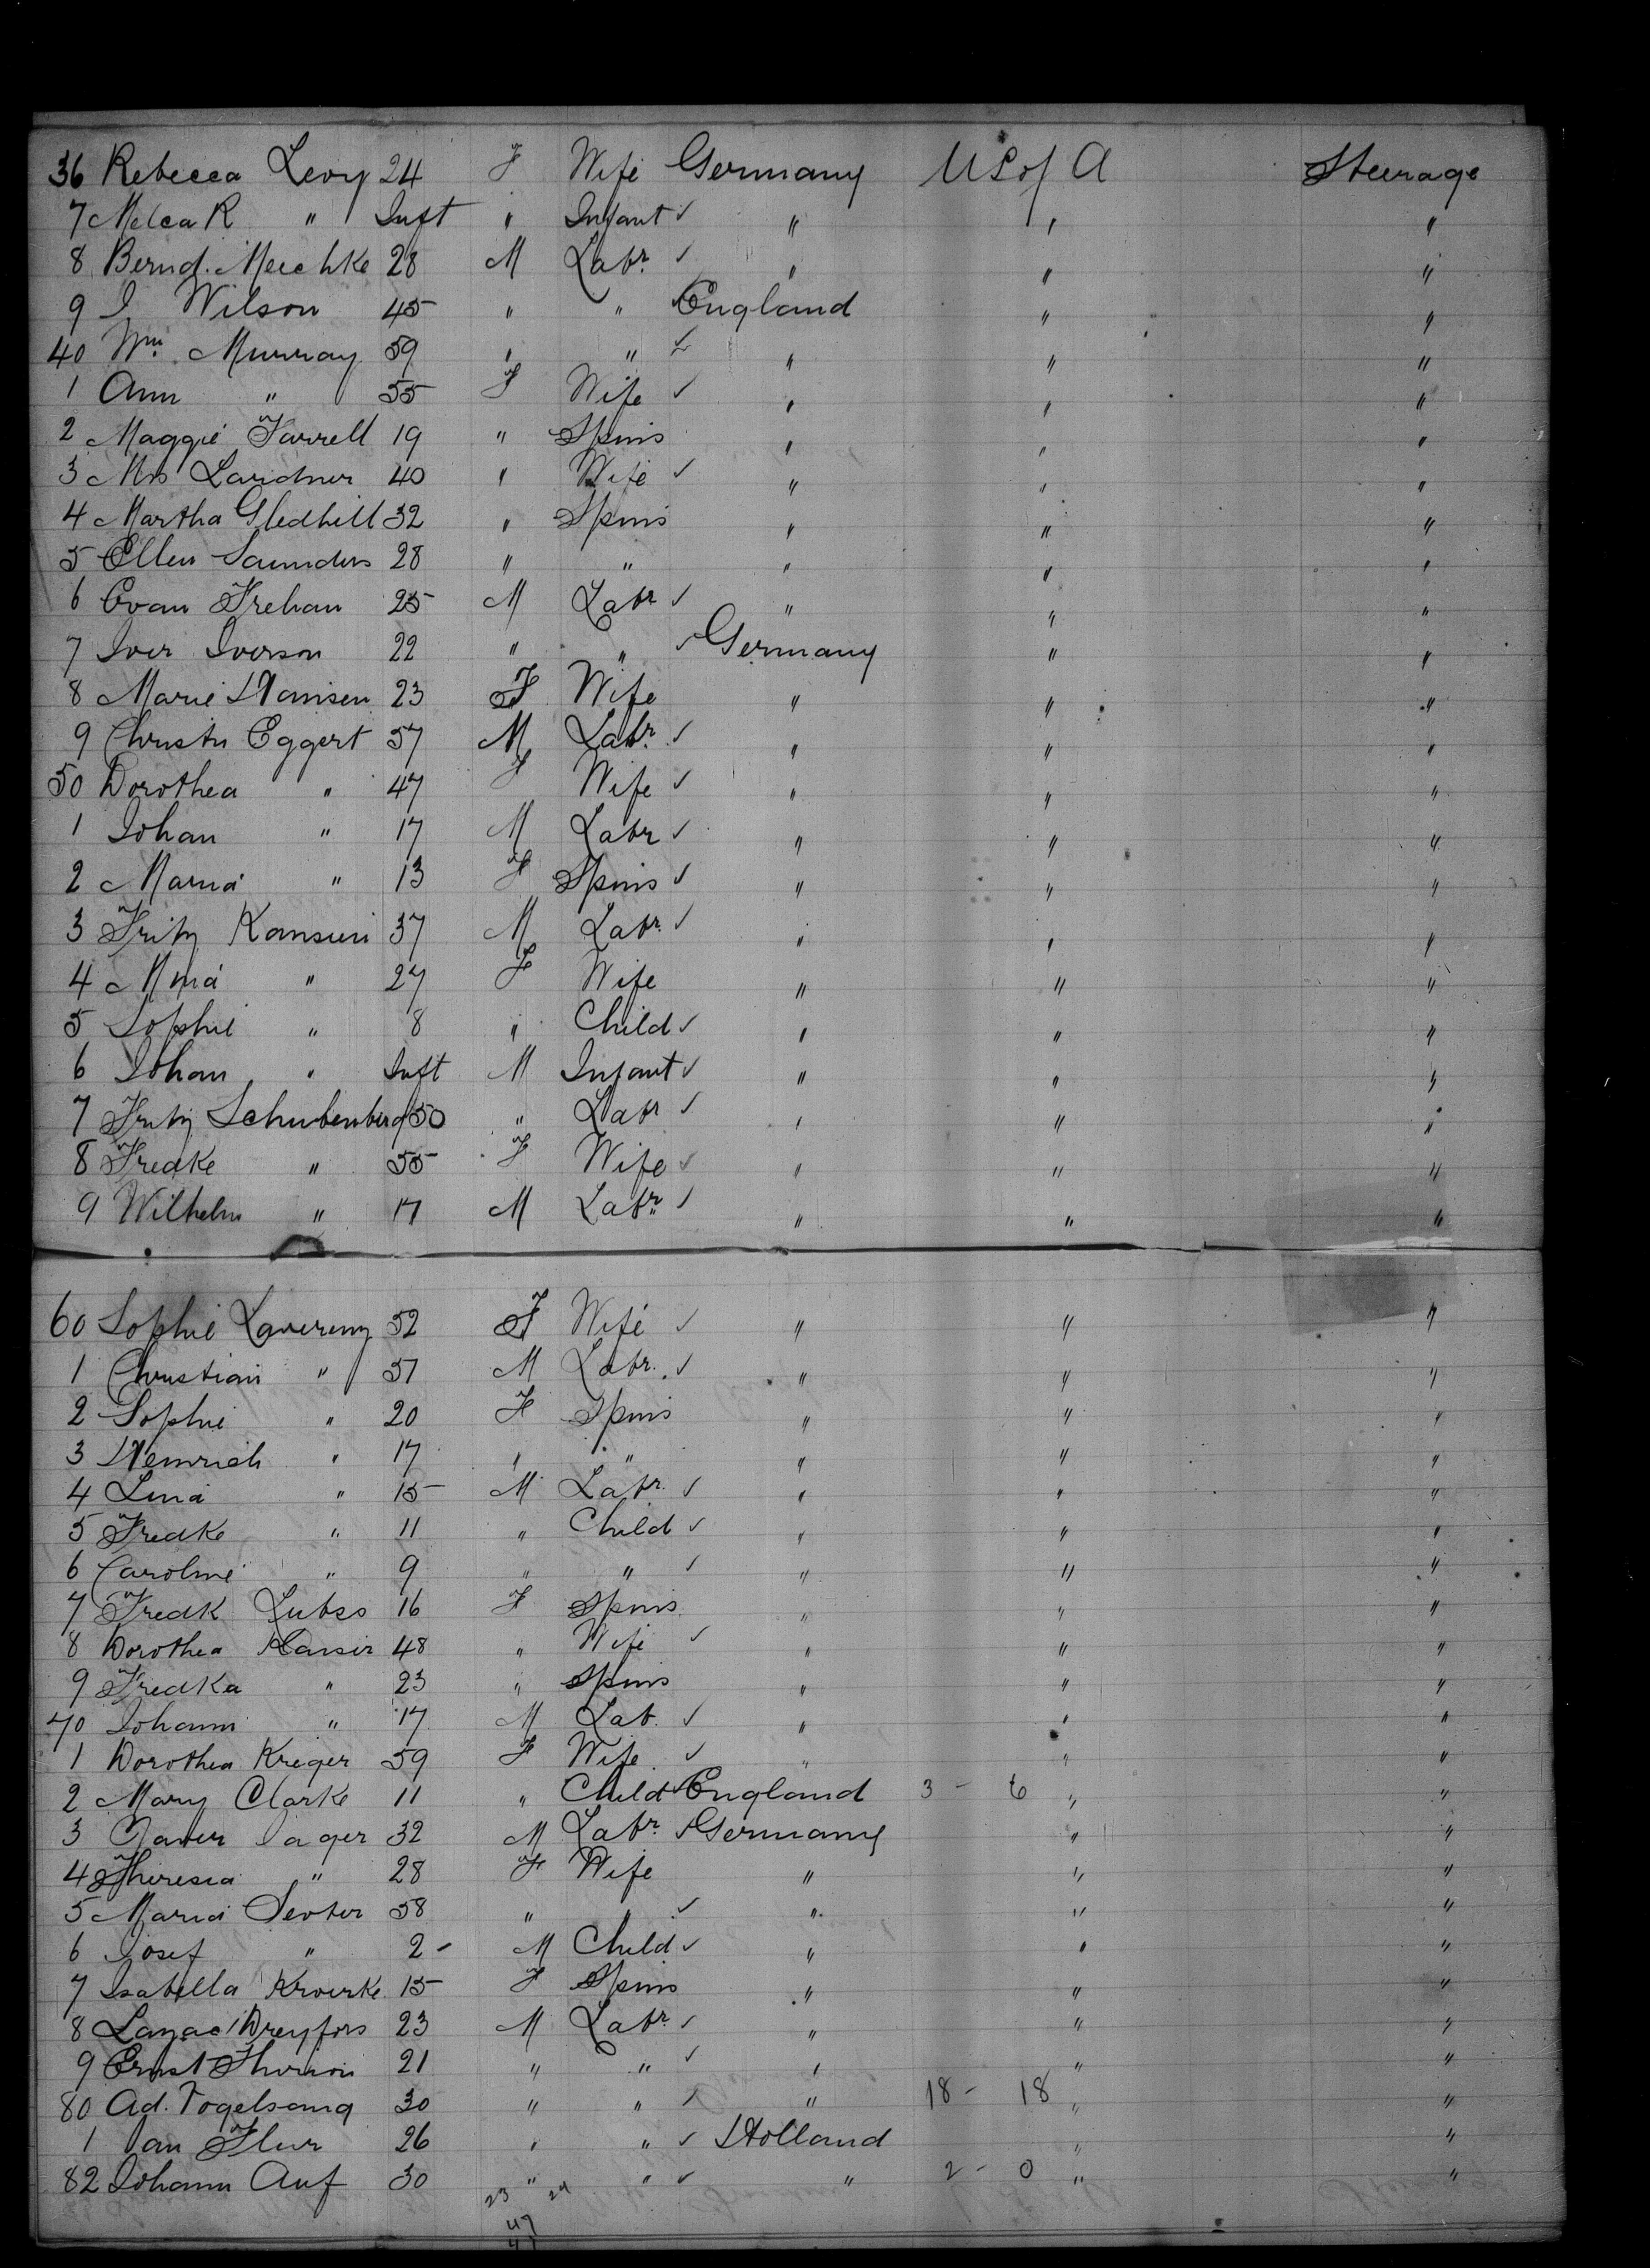 36 Rebecca Levy 24 F Wife Germany U S of A Steerage
7 Melca R " Inft " Infant ✓ " " "
8 Bernd. Meechke 28 M Labr. ✓ " " "
9 I Wilson 45 " " England " "
40 Wm. Murray 59 " " ✓ " " "
1 Ann " 55 F Wife ✓ " " "
2 Maggie Farrell 19 " Spins " " "
3 Mrs Lardner 40 " Wife ✓ " " "
4 Martha Gledhill 32 " Spins " " "
5 Ellen Saunders 28 " " " " "
6 Evan Trehan 25 M Labr ✓ " " "
7 Iver Iverson 22 " " ✓ Germany " "
8 Marie Hansen 23 F Wife " " "
9 Christn Eggert 57 M Labr. ✓ " " "
50 Dorothea " 47 F Wife ✓ " " "
1 Johan " 17 M Labr ✓ " " "
2 Maria " 13 F Spins ✓ " " "
3 Fritz 37 M Labr. ✓ " " "
4 " 27 F Wife " " "
5 Sophie " 8 " Child ✓ " " "
6 Johan " Inft M Infant ✓ " " "
7 Fritz Schubenberg 50 " Labr ✓ " " "
8 Fredke " 55 F Wife ✓ " " "
9 Wilhelm " 17 M Labr. ✓ " " "
60 Sophie Laverenz 52 F Wife ✓ " " "
1 Christian " 51 M Labr. ✓ " " "
2 Sophie " 20 F Spins " " "
3 Heinrich " 17 " " " " "
4 Lina " 15 M Labr. ✓ " " "
5 Fredke " 11 " Child ✓ " " "
6 Caroline " 9 " " ✓ " " "
7 Fredk Lubss 16 F Spins " " "
8 Dorothea 48 " Wife ✓ " " "
9 Fredka " 23 " Spins " " "
70 Johann " 17 M Lab. ✓ " " "
1 Dorothea Kreger 59 F Wife ✓ " " "
2 Mary Clarke 11 " Child ✓ England 3 - 6 " "
3 Xaver Jager 32 M Labr. ✓ Germany " "
4 Theresia " 28 F Wife " " "
5 Maria 58 " " ✓ " " "
6 Josef " 2 - M Child ✓ " " "
7 Isabella 15 F Spins " " "
8 Dreyfors 23 M Labr. ✓ " " "
9 Ernst 21 " " ✓ " " "
80 Ad. Vogelsang 30 " " ✓ " 18 - 18 " "
1 Jan Flur 26 " " ✓ Holland " "
82 Johann Auf 30 " " ✓ " 2 - 0 " "
23 24
47
47